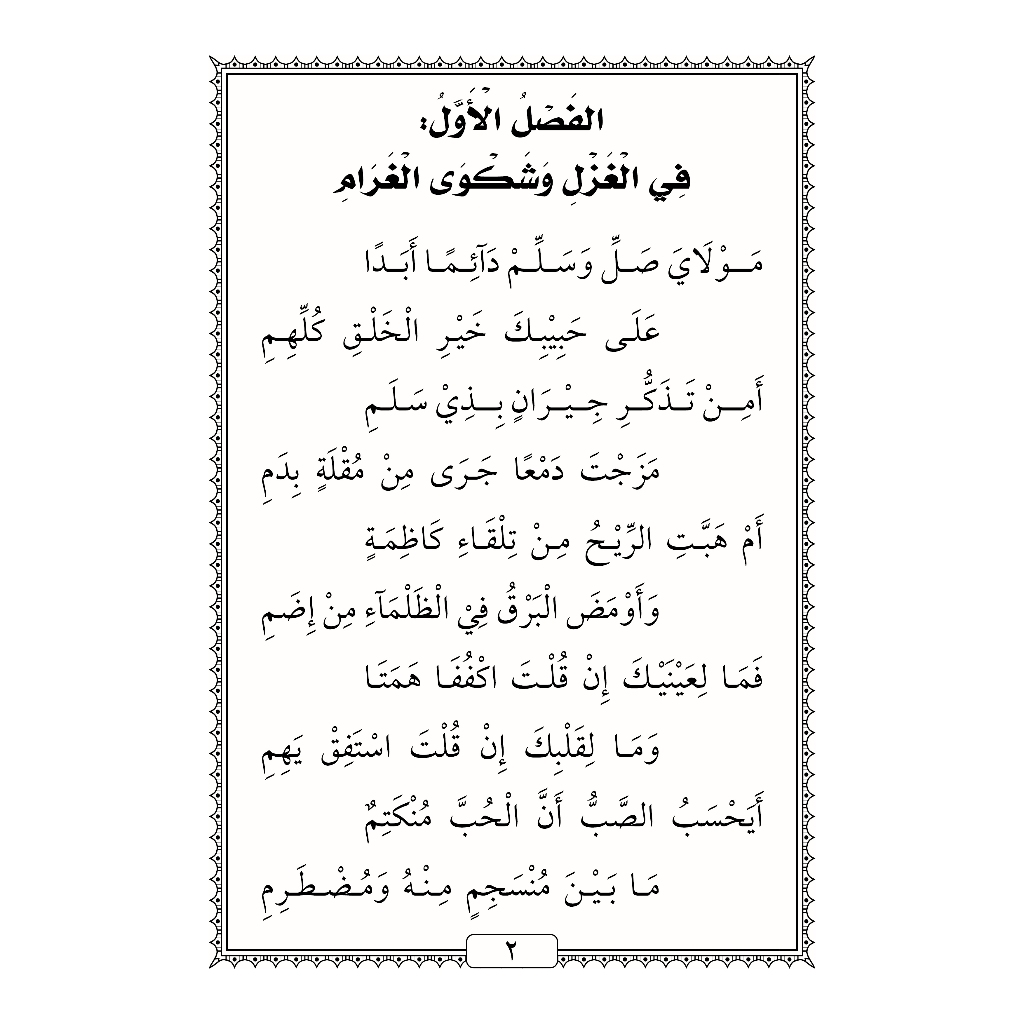 الفَصْلُ الْأَوَّلُ:
فِي الْغَزْلِ وَشَكْوَى الْغَرَامِ
مَوْلَايَ صَلِّ وَسَلِّمْ دَآئِمًا أَبَدًا
عَلَى حَبِيْبِكَ خَيْرِ الْخَلْقِ كُلِّهِمِ
أَمِنْ تَذَكُّرِ جِيْرَانٍ بِذِيْ سَلَمِ
مَزَجْتَ دَمْعًا جَرَى مِنْ مُقْلَةٍ بِدَمِ
أَمْ هَبَّتِ الرِّيْحُ مِنْ تِلْقَاءِ كَاظِمَةٍ
وَأَوْمَضَ الْبَرْقُ فِيْ الْظَلْمَآءِ مِنْ إِضَمِ
فَمَا لِعَيْنَيْكَ إِنْ قُلْتَ اكْفُفَا هَمَتَا
وَمَا لِقَلْبِكَ إِنْ قُلْتَ اسْتَفِقْ يَهِمِ
أَيَحْسَبُ الصَّبُّ أَنَّ الْحُبَّ مُنْكَتِمٌ
مَا بَيْنَ مُنْسَجِمٍ مِنْهُ وَمُضْطَرِمِ
٢